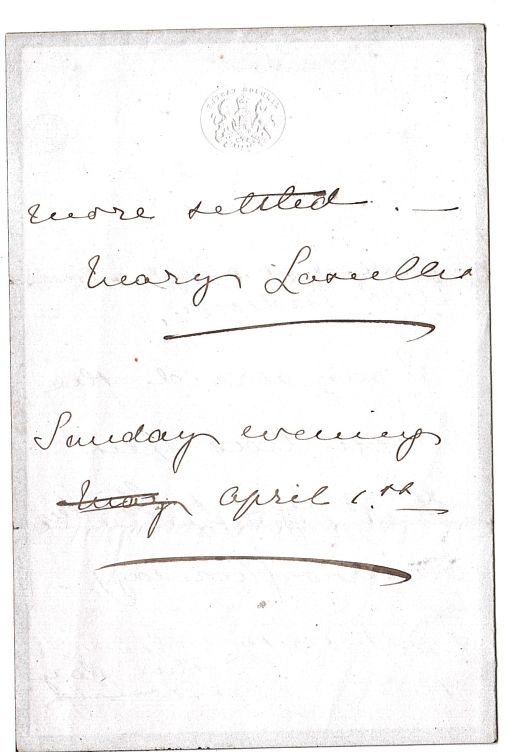 more settled . —
Mary
Sunday evening
May April 1.st